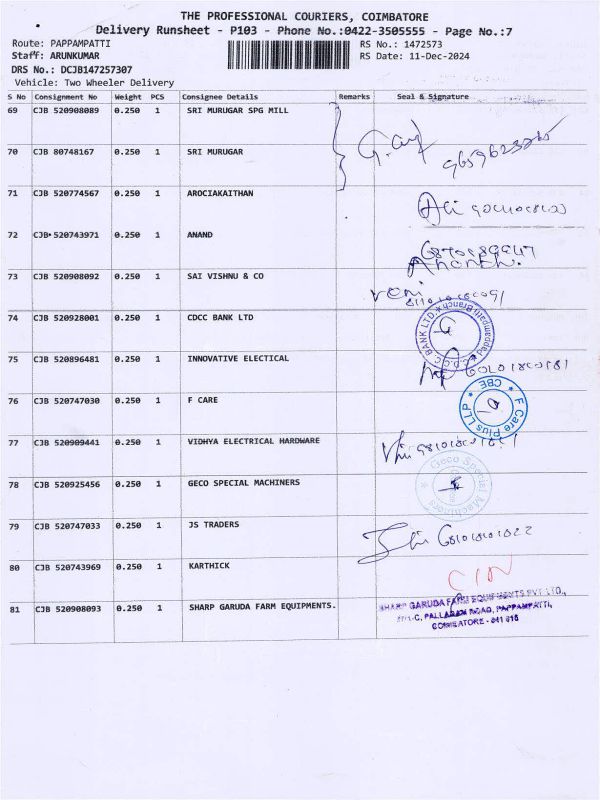 THE PROFESSIONAL COURIERS, COIMBATORE
Delivery Runsheet - P103 - Phone No.:0422-3505555 - Page No.:7
Route: PAPPAMPATTI RS No.: 1472573
Staff: ARUNKUMAR RS Date: 11-Dec-2024
DRS No.: DCJB147257307
Vehicle: Two Wheeler Delivery
S No Consignment No Weight PCS Consignee Details Remarks Seal & Signature
69 CJB 520908089 0.250 1 SRI MURUGAR SPG MILL
70 CJB 80748167 0.250 1 SRI MURUGAR
71 CJB 520774567 0.250 1 AROCIAKAITHAN
72 CJB 520743971 0.250 1 ANAND
73 CJB 520908092 0.250 1 SAI VISHNU & CO
74 CJB 520928001 0.250 1 CDCC BANK LTD
C.D.C.C. BANK LTD. * Papampatti Branch *
75 CJB 520896481 0.250 1 INNOVATIVE ELECTICAL
76 CJB 520747030 0.250 1 F CARE
* F Care Plus LLP * CBE
77 CJB 520909441 0.250 1 VIDHYA ELECTRICAL HARDWARE
78 CJB 520925456 0.250 1 GECO SPECIAL MACHINERS
Geco Special Machiners
79 CJB 520747033 0.250 1 JS TRADERS
80 CJB 520743969 0.250 1 KARTHICK
81 CJB 520908093 0.250 1 SHARP GARUDA FARM EQUIPMENTS.
SHARP GARUDA FARM EQUIPMENTS PVT LTD.,
PALLADAM ROAD, PAPPAMPATTI,
COIMBATORE -